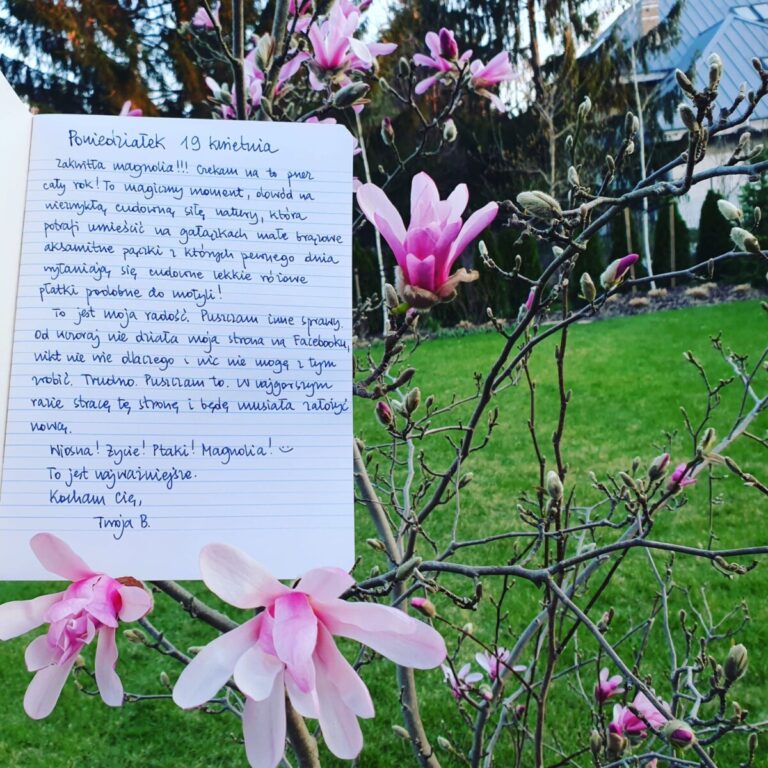 Poniedziałek 19 kwietnia
Zakwitła magnolia!!! Czekam na to przez
cały rok! To magiczny moment, dowód na
niezwykłą cudowną siłę natury, która
potrafi umieścić na gałązkach małe brązowe
aksamitne pączki z których pewnego dnia
wyłaniają się cudowne lekkie różowe
płatki podobne do motyli!
To jest moja radość. Puszczam inne sprawy.
Od wczoraj nie działa moja strona na Facebooku,
nikt nie wie dlaczego i nic nie mogę z tym
zrobić. Trudno. Puszczam to. W najgorszym
razie stracę tę stronę i będę musiała założyć
nową.
Wiosna! Życie! Ptaki! Magnolia!
To jest najważniejsze.
Kocham Cię,
Twoja B.